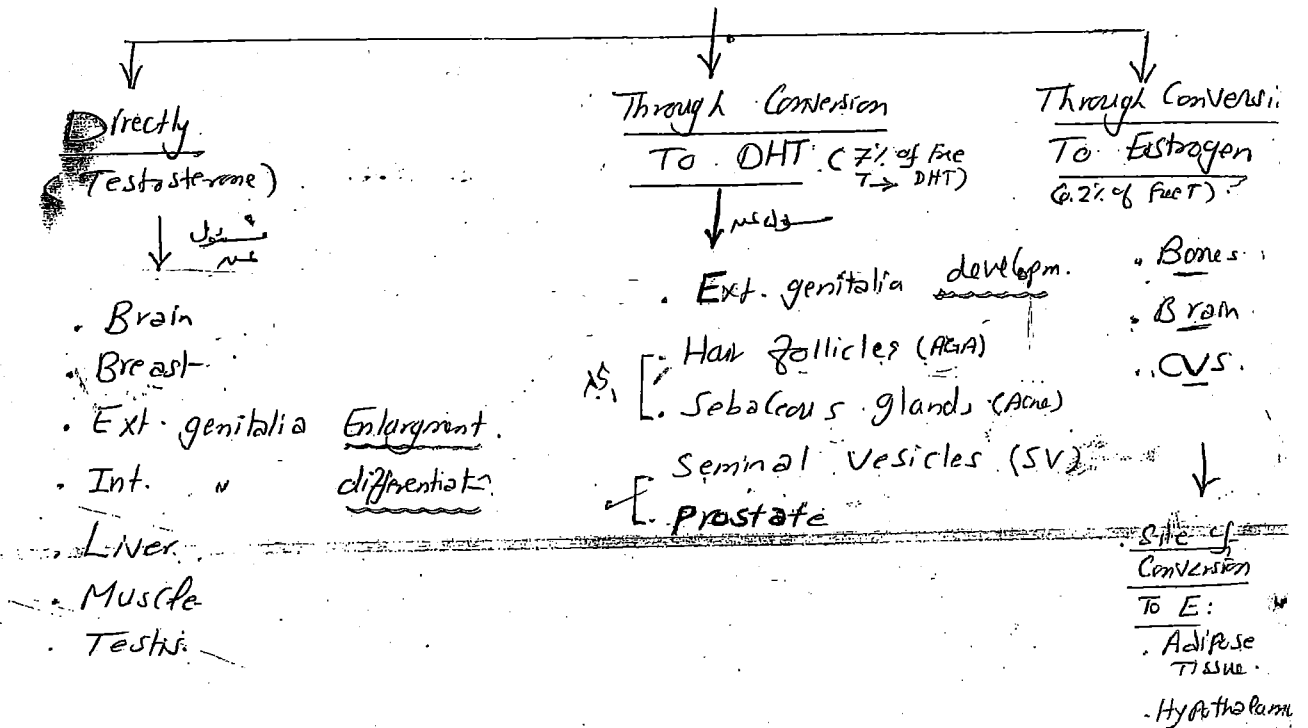 Directly
(Testosterone)
مسئول
عن
. Brain
. Breast
. Ext. genitalia Enlargment.
. Int. " differentiat
. Liver.
. Muscle
. Testis.
Through Conversion
To DHT (7% of Free
T → DHT)
مسئول عن
. Ext. genitalia developm.
. Hair follicles (AGA)
. Sebaceous glands (Acne)
. Seminal Vesicles (SV)
. Prostate
Through Conversi
To Estrogen
(0.2% of Free T).
. Bones
. Brain
. CVS.
. Site of
Conversion
To E:
. Adipose
Tissue.
. Hypothalamu